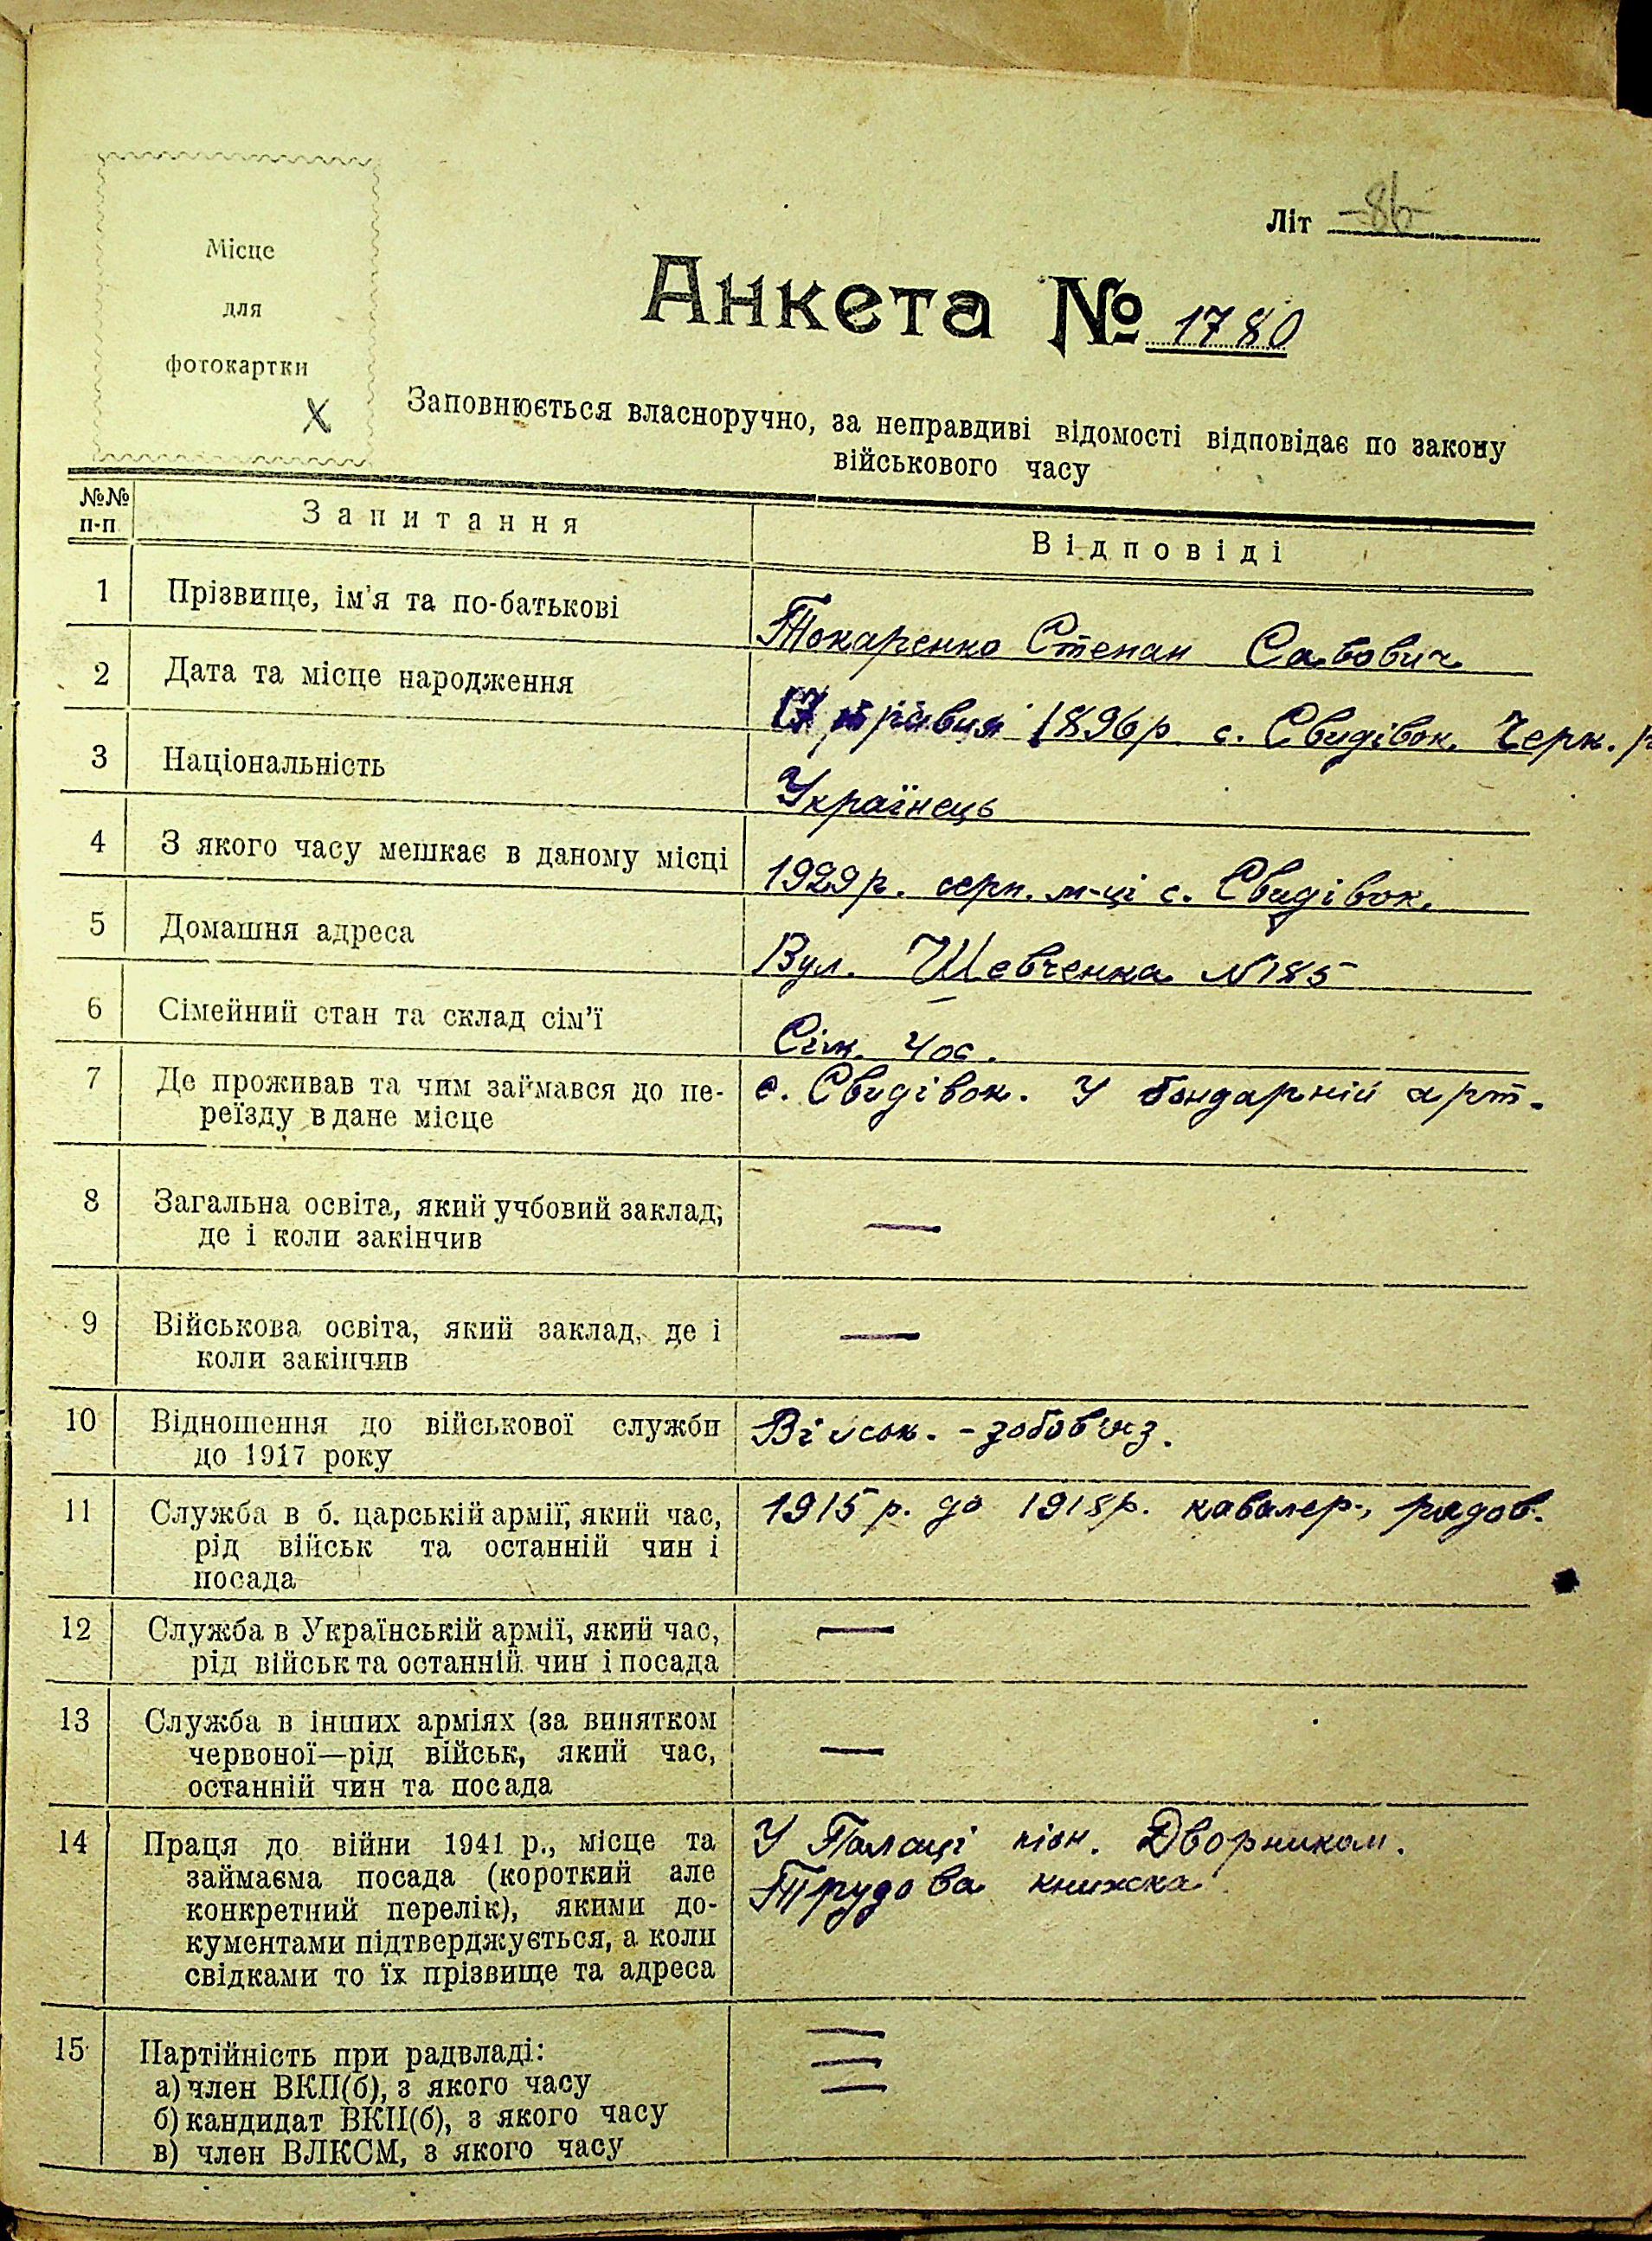 Місце
для
фотокартки
Літ 86
Анкета № 1780
Заповнюється власноручно, за неправдиві відомості відповідає по закону
військового часу
№№ п-п Запитання Відповіді
1 Прізвище, ім'я та по-батькові Токаренко Степан Савович
2 Дата та місце народження 17 травня 1896 р. с. Свидівок, Черк.
3 Національність Українець
4 З якого часу мешкає в даному місці 1929 р. серп. м-ці с. Свидівок.
5 Домашня адреса Вул. Шевченка № 185
6 Сімейний стан та склад сім'ї Сім. 4 ос.
7 Де проживав та чим займався до пе- с. Свидівок. У бондарній арт.
реїзду в дане місце
8 Загальна освіта, який учбовий заклад, —
де і коли закінчив
9 Військова освіта, який заклад, де і —
коли закінчив
10 Відношення до військової служби Військ.-зобов'яз.
до 1917 року
11 Служба в б. царській армії, який час, 1915 р. до 1918 р. кавалер., рядов.
рід військ та останній чин і
посада
12 Служба в Українській армії, який час, —
рід військ та останній чин і посада
13 Служба в інших арміях (за винятком
червоної—рід військ, який час, —
останній чин та посада
14 Праця до війни 1941 р., місце та У Палаці піон. Дворником.
займаєма посада (короткий але Трудова книжка
конкретний перелік), якими до-
кументами підтверджується, а коли
свідками то їх прізвище та адреса
15 Партійність при радвладі: —
а) член ВКП(б), з якого часу —
б) кандидат ВКП(б), з якого часу —
в) член ВЛКСМ, з якого часу